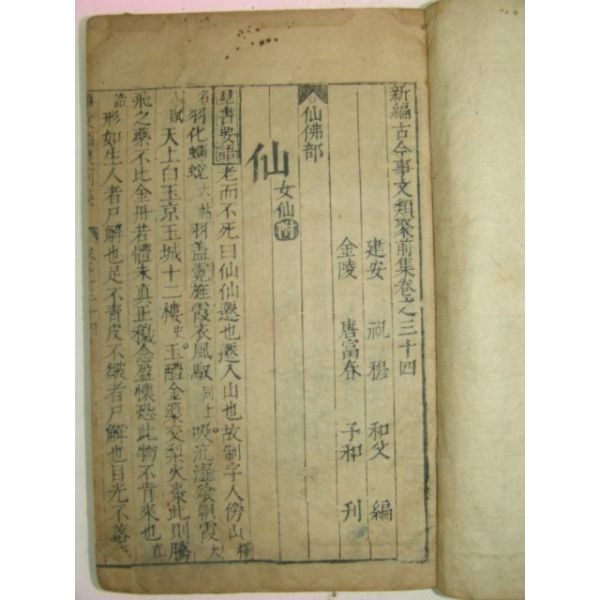 新編古今事文類聚前集卷之三十四
建安 祝穆 和父 編
金陵 唐富春 子和 刊
仙佛部
仙 女仙附
羣書要語 老而不死曰仙仙遷也遷入山也故制字人傍山 釋
名 羽化蟬蛻 六帖 羽盖霓旌霞衣風馭 同上 吸沆瀣飡朝霞 大
人賦 天上白玉京玉城十二樓 史 玉醴金漿交梨火棗此則騰
飛之藥不比金丹若體未真正穢念盈懷恐此物不肯來也 真
誥 形如生人者尸解也足不青皮不皺者尸解也目光不落